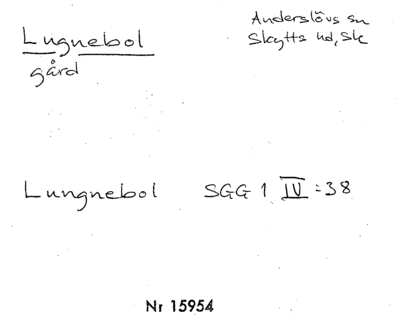 Lugnebol
gård
Anderslövs sn
Skytts hd, Sk
Lungnebol SGG 1 IV:38
Nr 15954